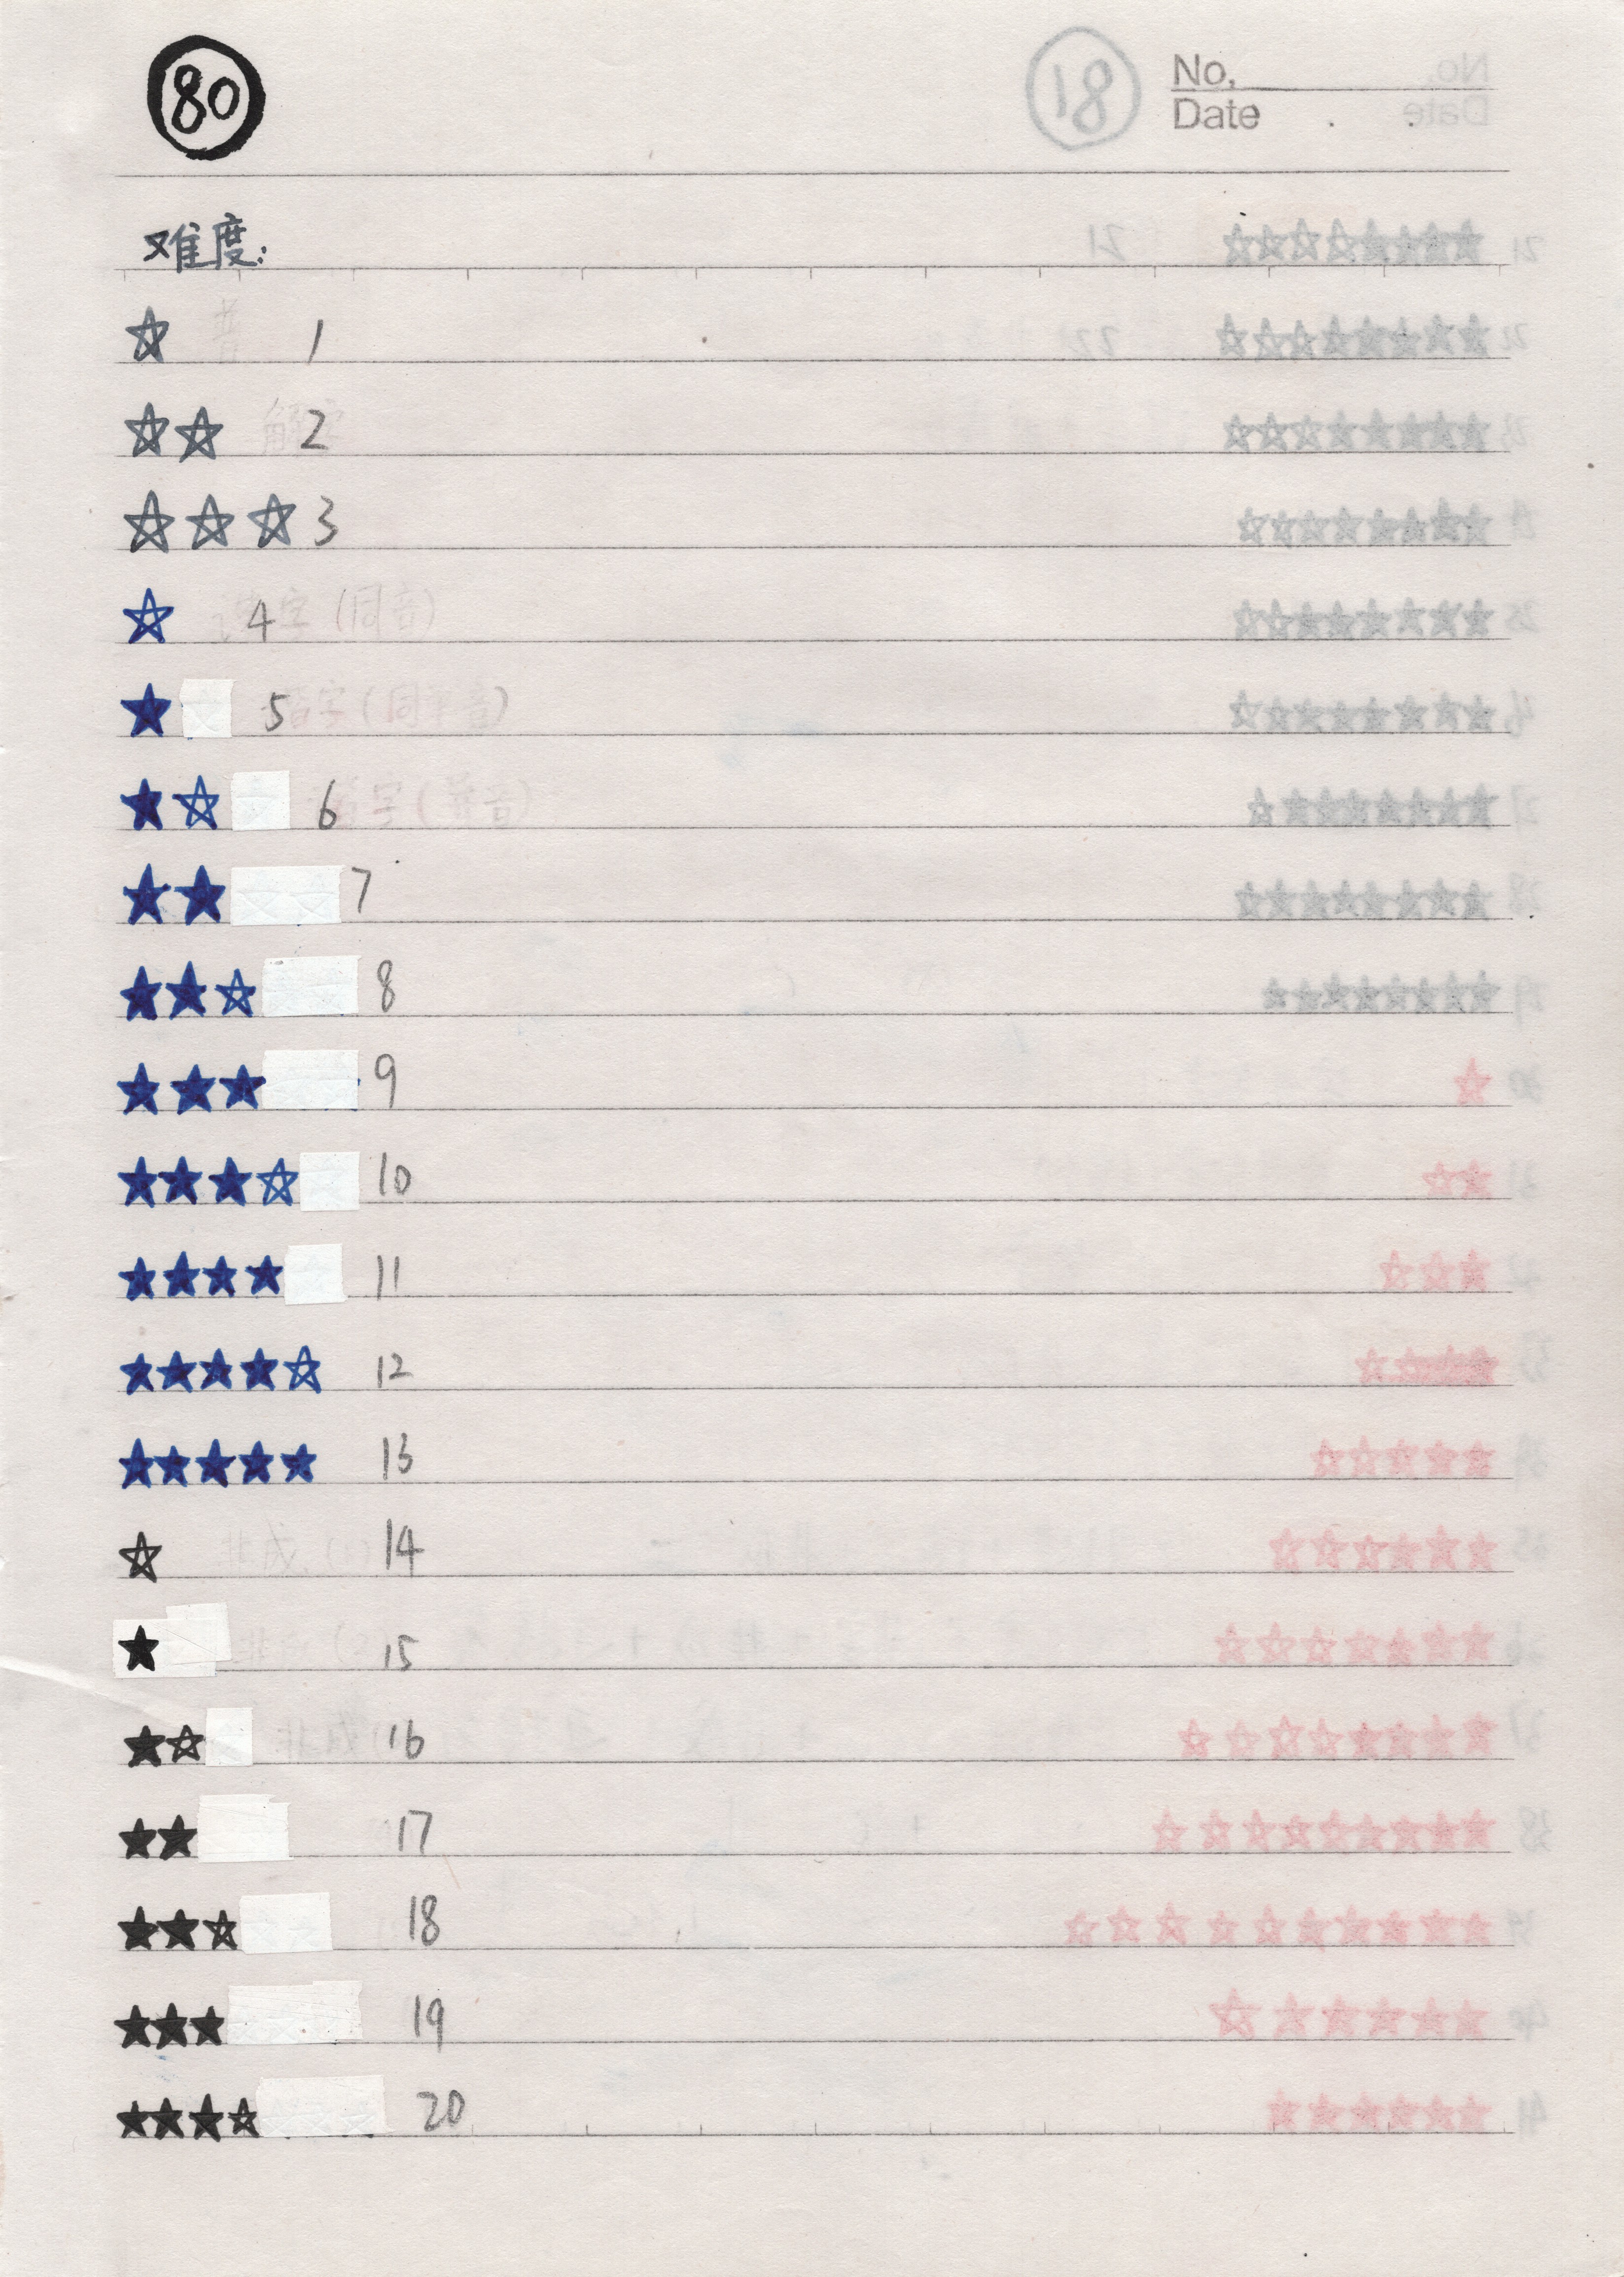 80 18 No.
Date . .
难度:
☆ 1
☆☆ 2
☆☆☆ 3
☆ 4
★ 5
★☆ 6
★★ 7
★★☆ 8
★★★ 9
★★★☆ 10
★★★★ 11
★★★★☆ 12
★★★★★ 13
☆ 14
★ 15
★☆ 16
★★ 17
★★☆ 18
★★★ 19
★★★☆ 20